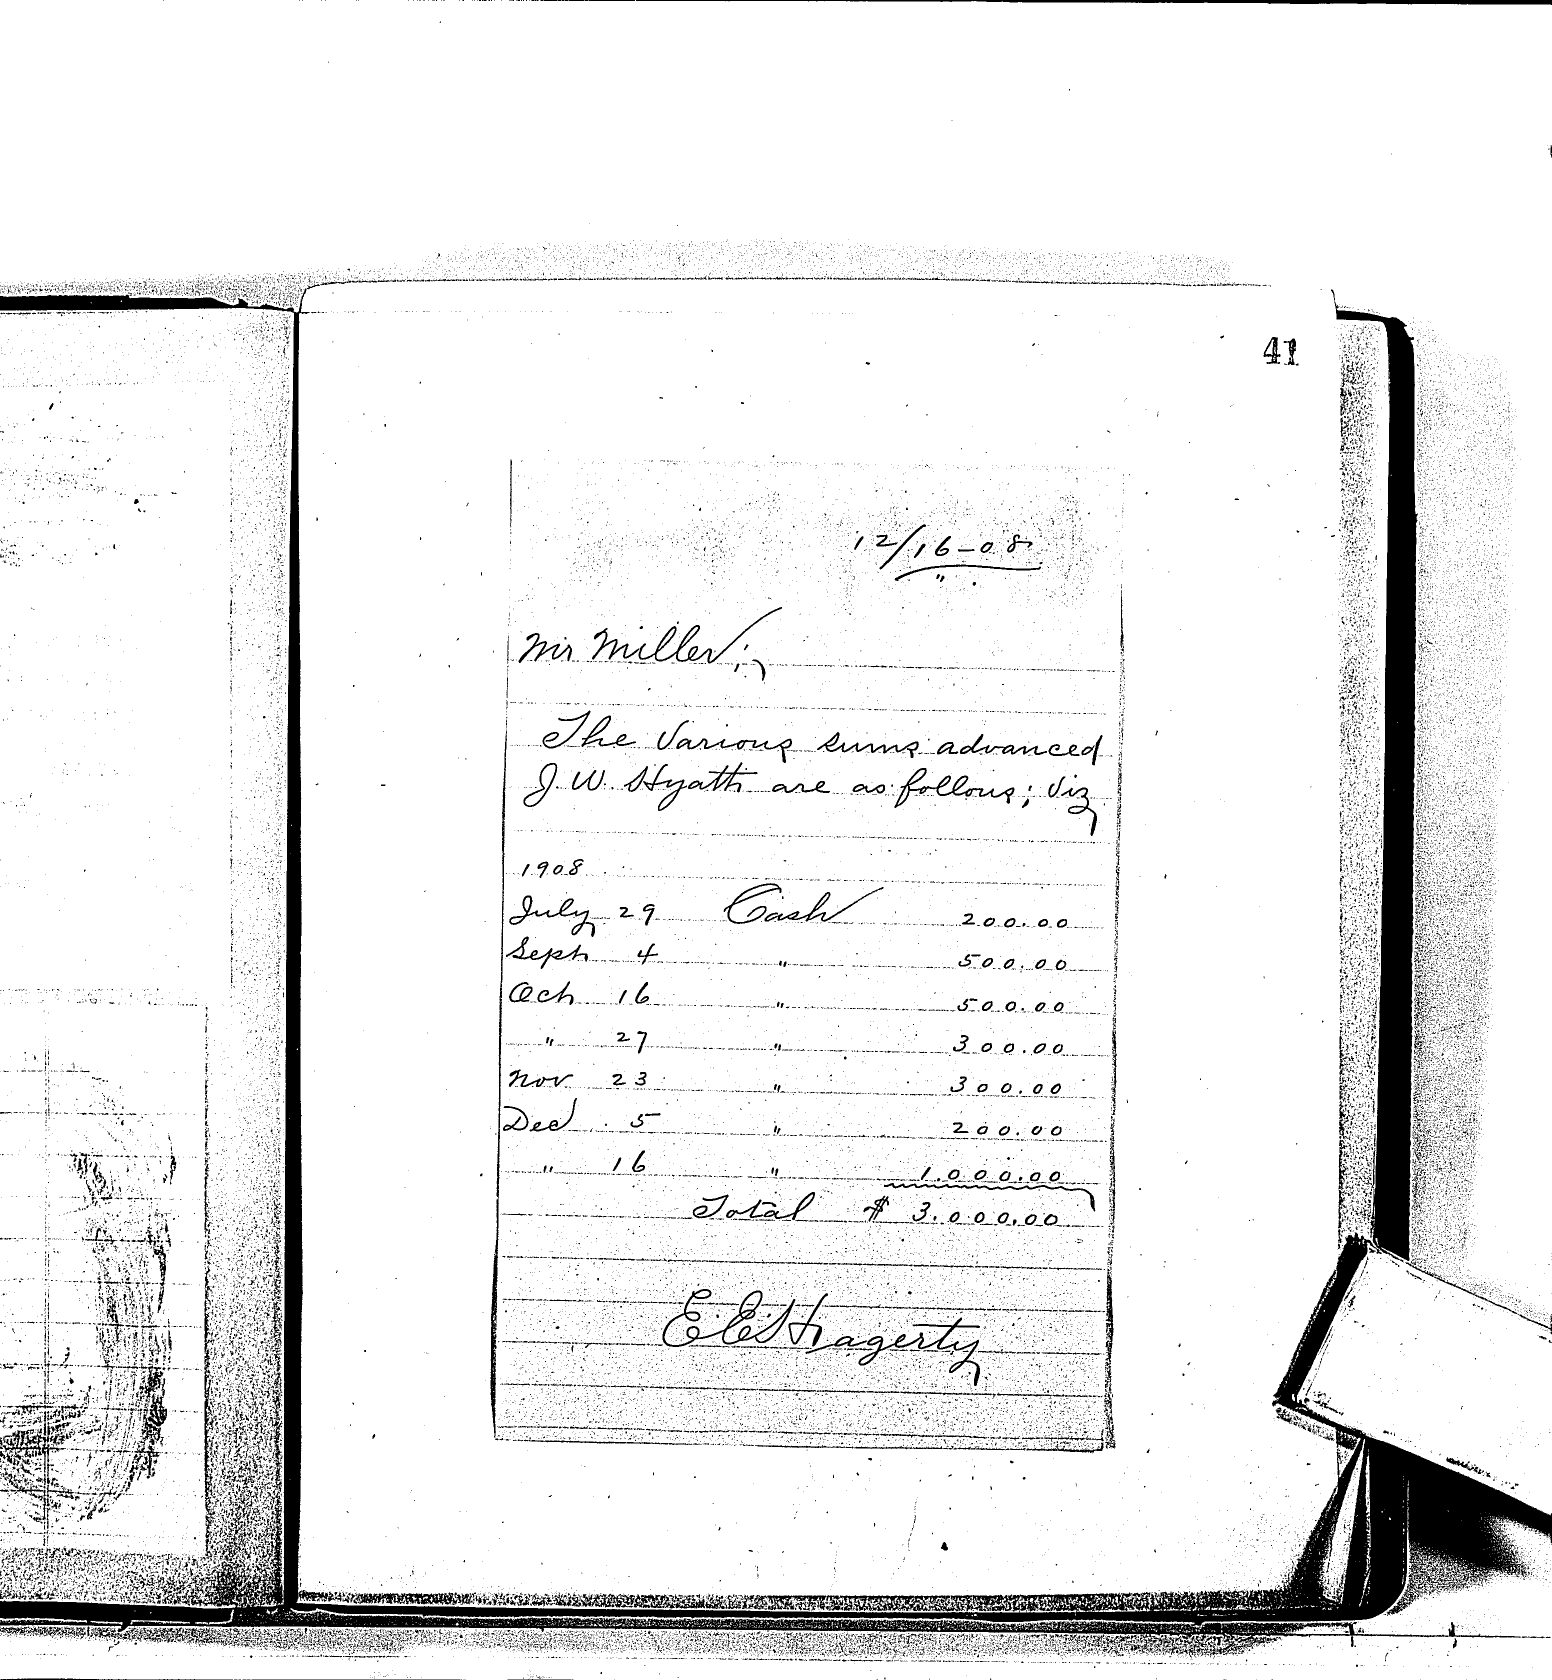 41
12/16-08
"
Mr Miller;
The Various sums advanced
J. W. Hyatt are as follows; Viz
1908
July 29 Cash 200.00
Sept 4 " 500.00
Oct 16 " 500.00
" 27 " 300.00
Nov 23 " 300.00
Dec 5 " 200.00
" 16 " 1.000.00
Total $ 3.000.00
E. E. Hagerty